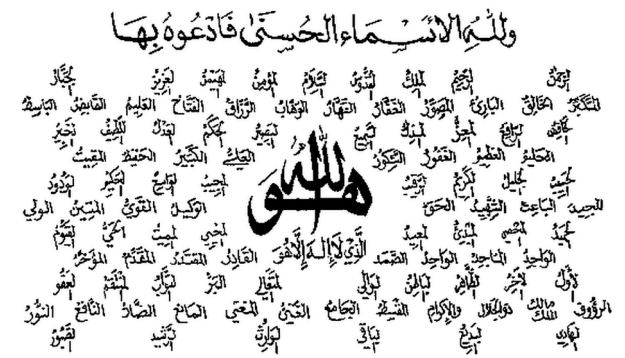 ولله الأسماء الحسنى فادعوه بها
الرحمن الرحيم الملك القدوس السلام المؤمن المهيمن العزيز الجبار
المتكبر الخالق البارئ المصور الغفار القهار الوهاب الرزاق الفتاح العليم القابض الباسط
الخافض الرافع المعز المذل السميع البصير الحكم العدل اللطيف الخبير
الحليم العظيم الغفور الشكور العلي الكبير الحفيظ المقيت
هو الله
الحسيب الجليل الكريم الرقيب المجيب الواسع الحكيم الودود
المجيد الباعث الشهيد الحق الوكيل القوي المتين الولي
الحميد المحصي المبدئ المعيد المحيي المميت الحي القيوم
الذي لا إله إلا هو
الواجد الماجد الواحد الصمد القادر المقتدر المقدم المؤخر
الأول الآخر الظاهر الباطن الوالي المتعالي البر التواب المنتقم العفو
الرؤوف مالك الملك ذو الجلال والإكرام المقسط الجامع الغني المغني المانع الضار النافع النور
الهادي البديع الباقي الوارث الرشيد الصبور